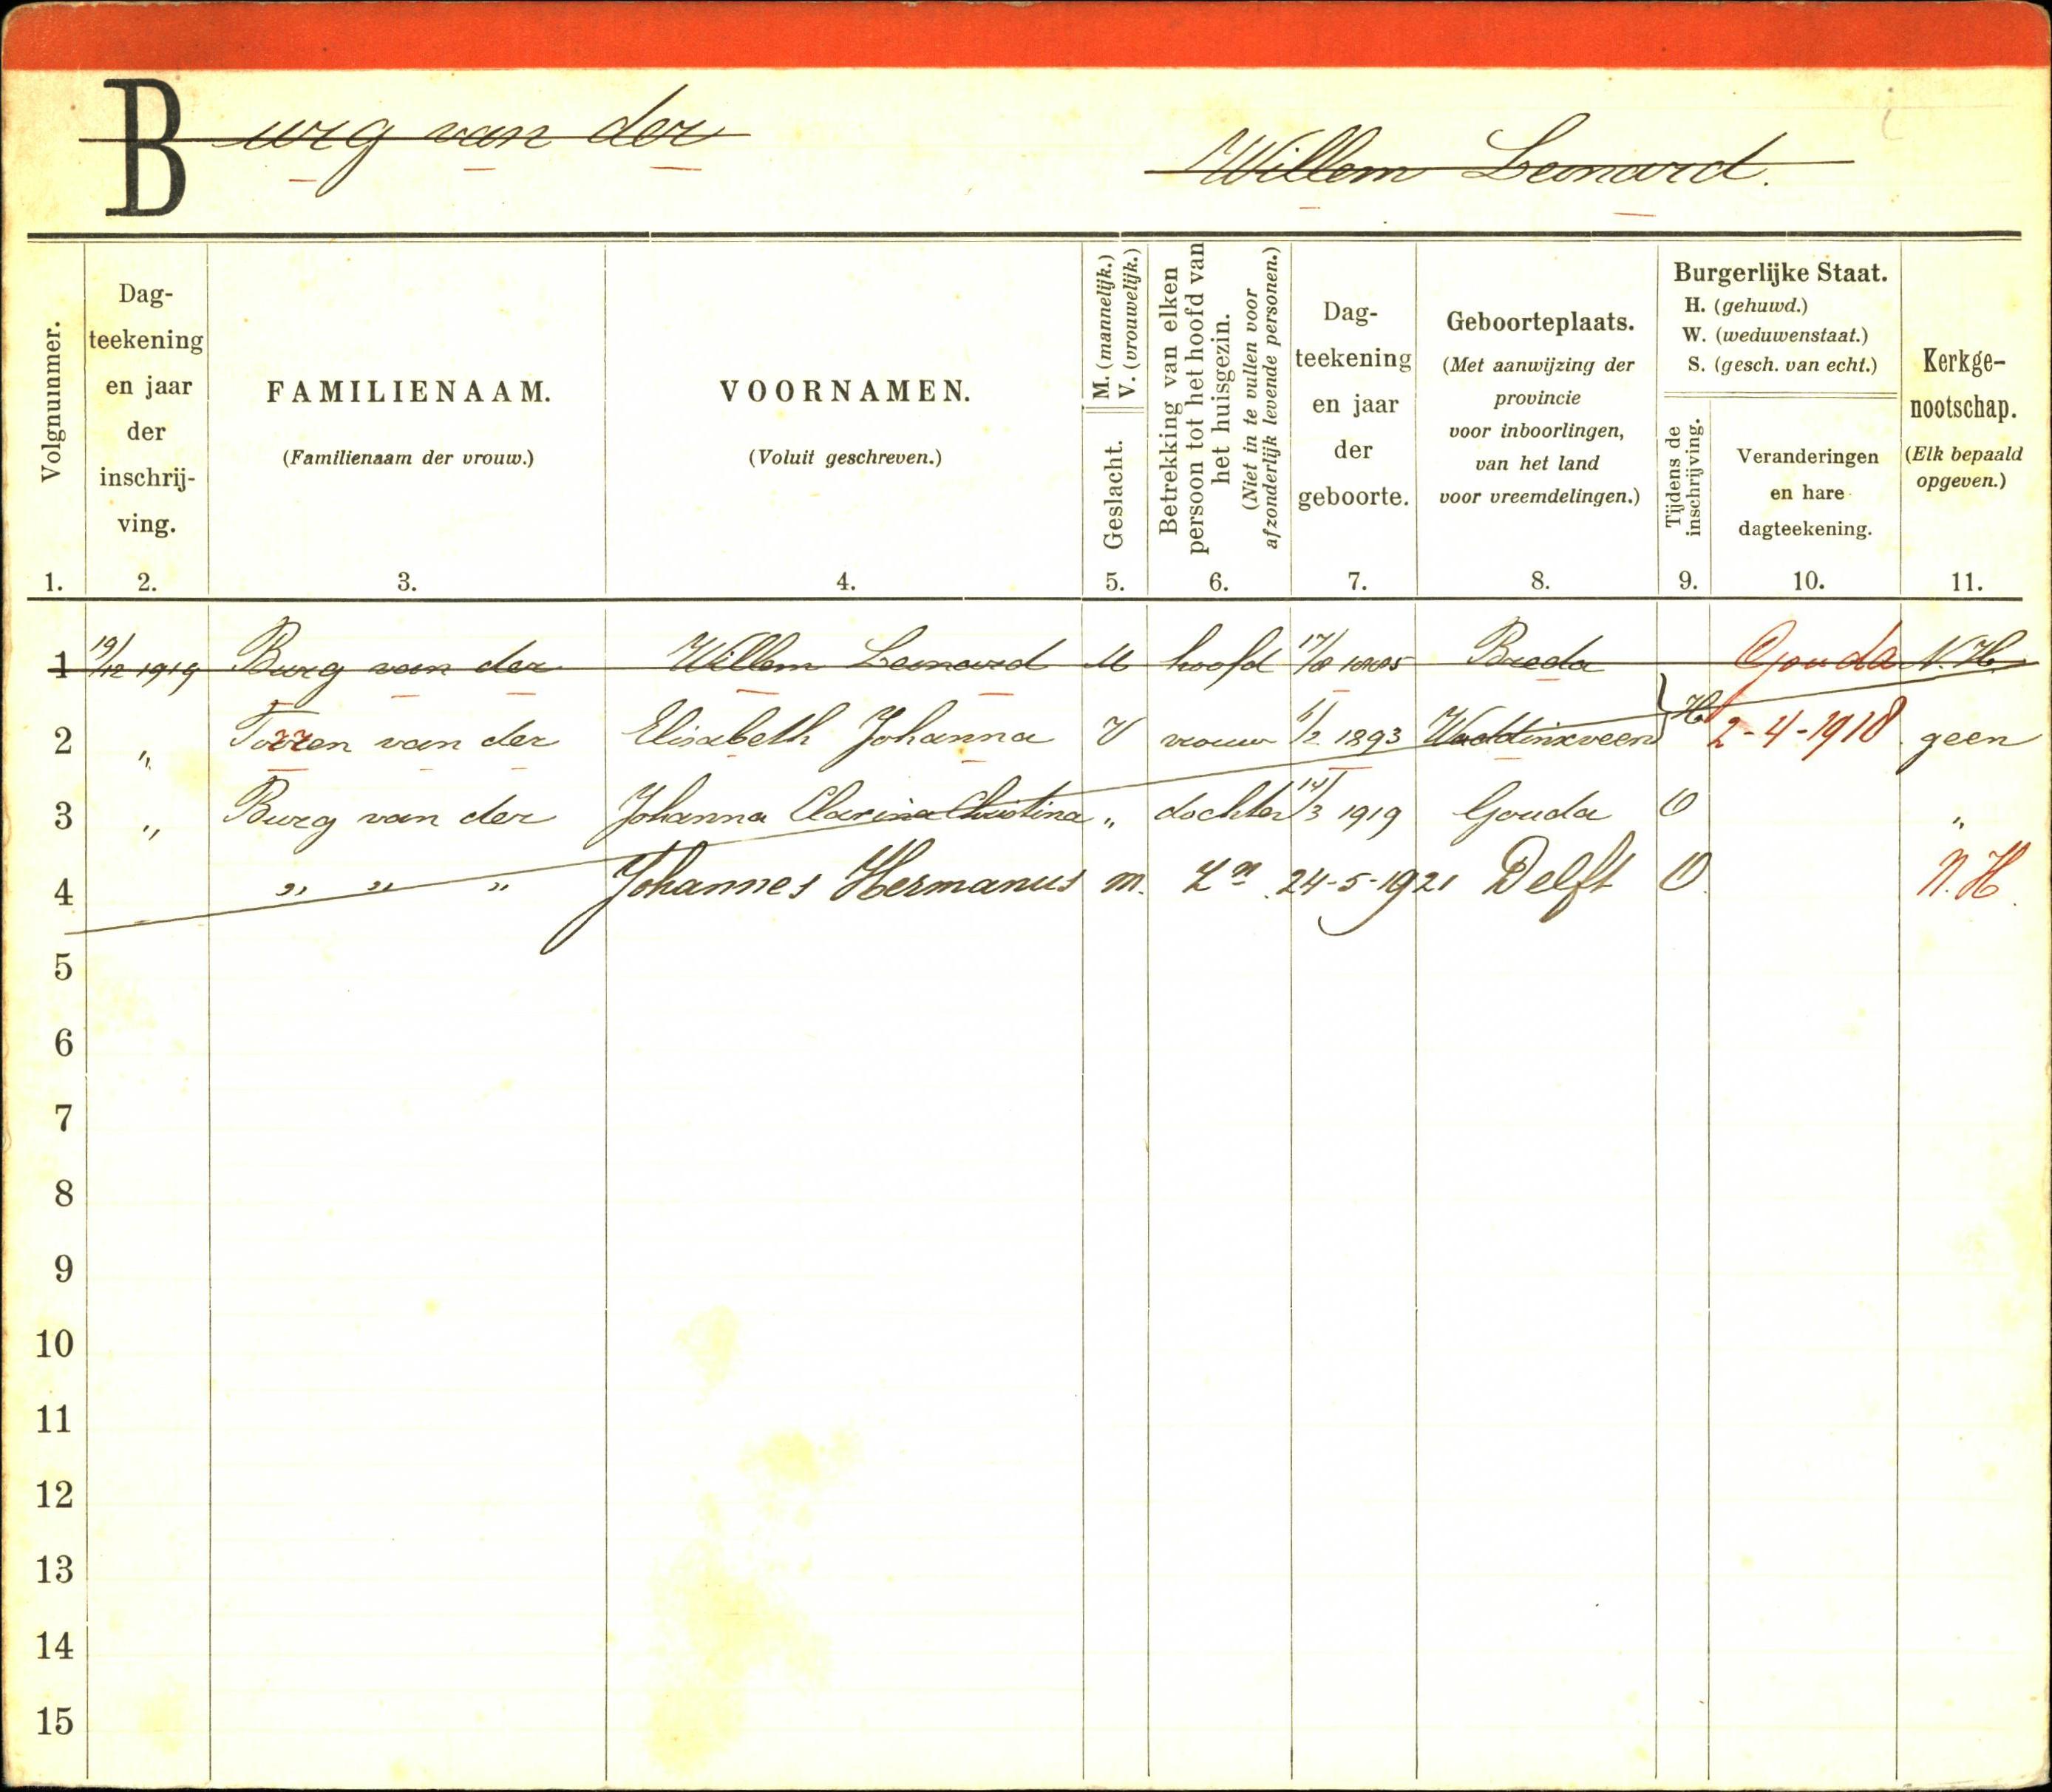 Burg van der
Willem Leonard.
Volgnummer.
Dag-
teekening
en jaar
der
inschrij-
ving.
FAMILIENAAM.
(Familienaam der vrouw.)
VOORNAMEN.
(Voluit geschreven.)
M. (mannelijk.)
V. (vrouwelijk.)
Geslacht.
Betrekking van elken
persoon tot het hoofd van
het huisgezin.
(Niet in te vullen voor
afzonderlijk levende personen.)
Dag-
teekening
en jaar
der
geboorte.
Geboorteplaats.
(Met aanwijzing der
provincie
voor inboorlingen,
van het land
voor vreemdelingen.)
Burgerlijke Staat.
H. (gehuwd.)
W. (weduwenstaat.)
S. (gesch. van echt.)
Tijdens de
inschrijving.
Veranderingen
en hare
dagteekening.
Kerkge-
nootschap.
(Elk bepaald
opgeven.)
1. 2. 3. 4. 5. 6. 7. 8. 9. 10. 11.
1 19/12 1919 Burg van der Willem Leonard M hoofd 17/8 Breda Gouda N.H.
2 " Torren van der Elisabeth Johanna V vrouw 1893 Waddinxveen H 2-4-1918 geen
3 " Burg van der Johanna Clasina Christina " dochter 1919 Gouda O "
4 " " " Johannes Hermanus m. Zn 24-5-1921 Delft O N.H.
5
6
7
8
9
10
11
12
13
14
15